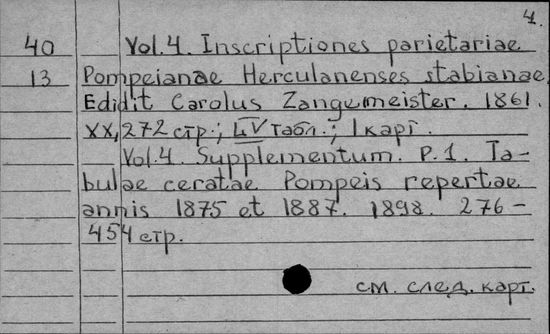 4.
40 Vol. 4. Inscriptiones parietariae
13 Pompeianae Herculanenses stabianae.
Edidit Carolus Zangemeister. 1861.
XX, 272 стр.; LV табл.; 1 карт.
Vol. 4. Supplementum. P. 1. Ta-
bulae ceratae Pompeis repertae
annis 1875 et 1887. 1898. 276-
454 стр.
см. след. карт.